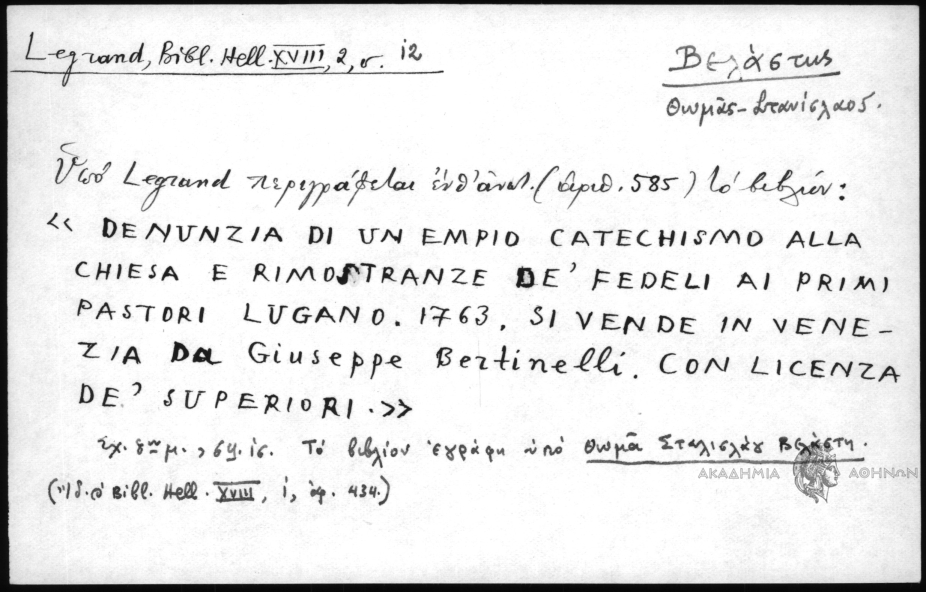 Legrand, Bibl. Hell. XVIII, 2, σ. 12
Βελάστης
Θωμᾶς-Στανίσλαος.
Ὑπό Legrand περιγράφεται ἐνθ' ἀνωτ. (ἀριθ. 585) τό βιβλίον:
« DENUNZIA DI UN EMPIO CATECHISMO ALLA
CHIESA E RIMOSTRANZE DE' FEDELI AI PRIMI
PASTORI LUGANO. 1763. SI VENDE IN VENE-
ZIA DA Giuseppe Bertinelli. CON LICENZA
DE' SUPERIORI.»
Σχ. 8ον μ., σελ. 15. Τό βιβλίον ἐγράφη ὑπό Θωμᾶ Σταλισλάου Βελάστη.
(Ἰδ. Bibl. Hell. XVIII, 1, ἀρ. 434.)
ΑΚΑΔΗΜΙΑ ΑΘΗΝΩΝ